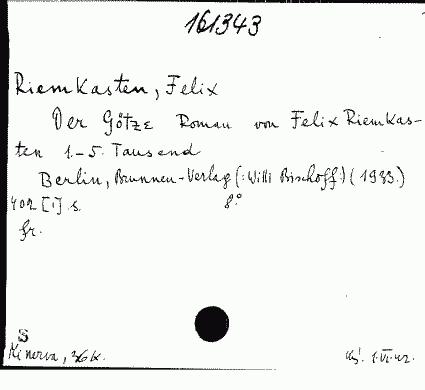 161343
Riemkasten, Felix
Der Götze Roman von Felix Riemkas-
ten 1.-5. Tausend
Berlin, Brunnen-Verlag (: Willi Bischoff :) (1933.)
402 [1] s. 8°
fr.
S
Minerva, 36 K.
1.VI.42.